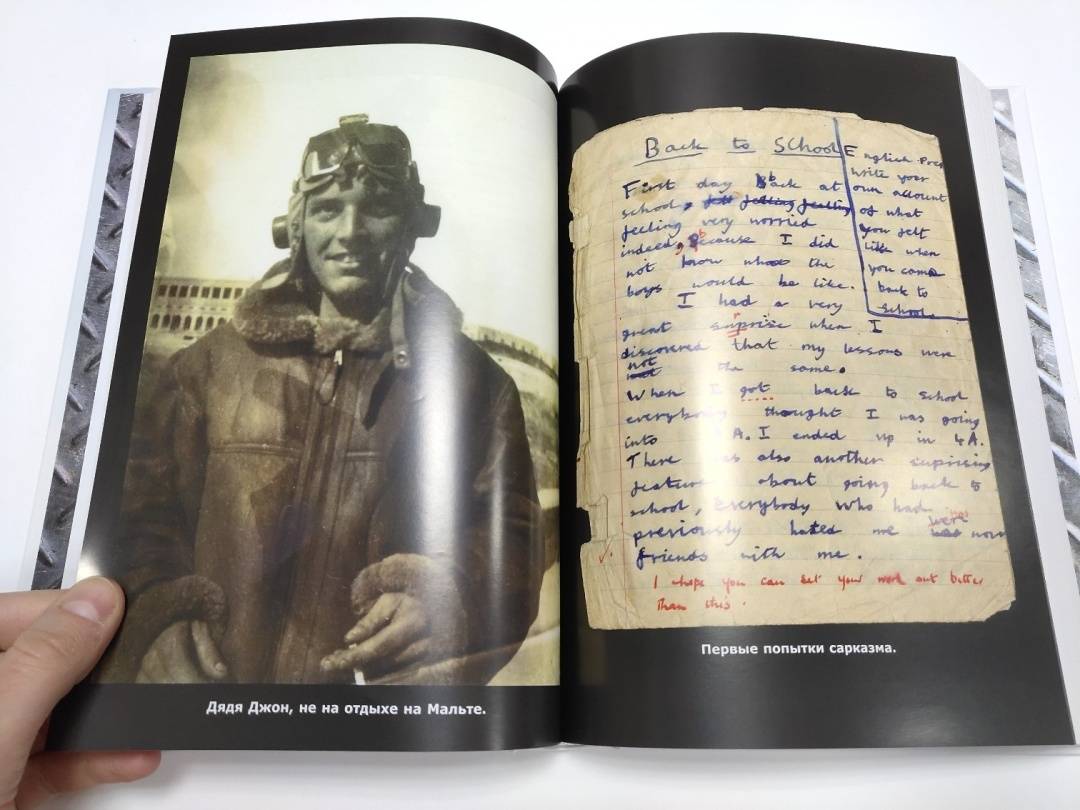 Дядя Джон, не на отдыхе на Мальте.
Back to School
English Prep
write your
own account
of what
you felt
like when
you came
back to
school.
First day back at
school, felt felling feeling
feeling very worried
indeed, because I did
not know what the
boys would be like.
I had a very
great surprise when I
discovered that my lessons were
not
not the same.
When I got back to school
everybody thought I was going
into A. I ended up in 4A.
There was also another suprising
feature about going back to
school, Everybody who had
previously hated me were now
friends with me.
I hope you can set your work out better
than this.
Первые попытки сарказма.